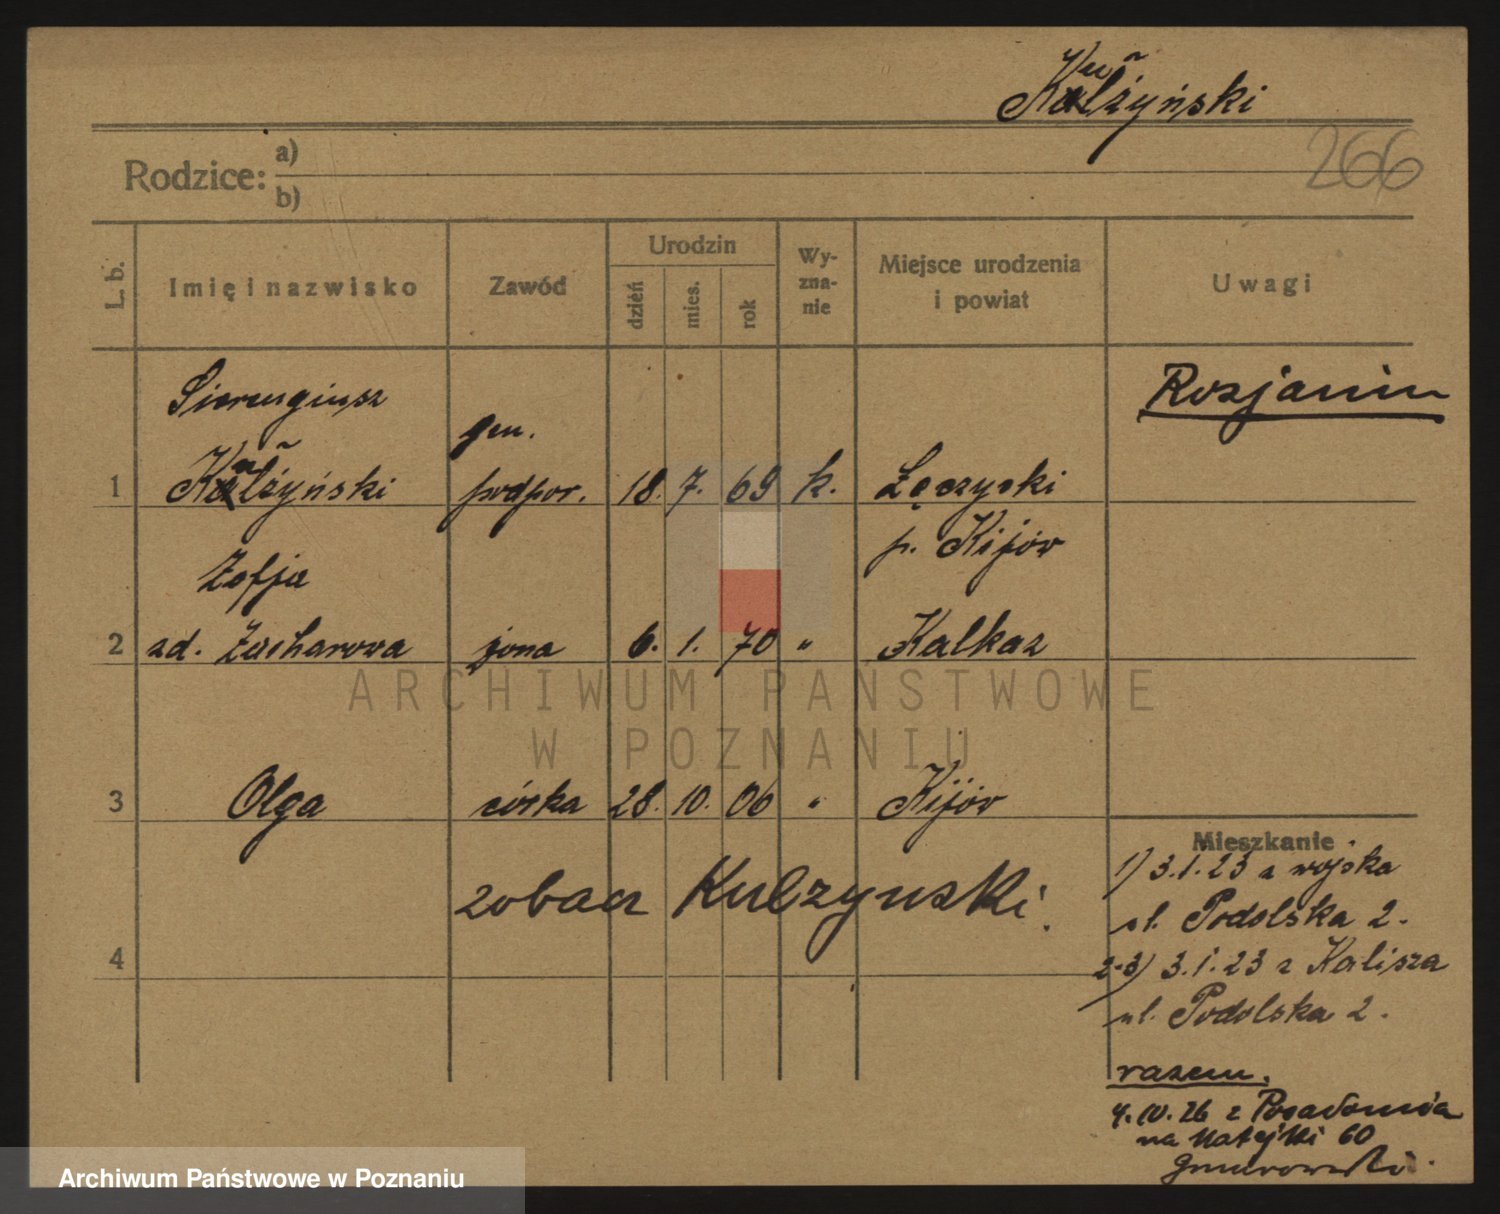 Kulżyński
266
Rodzice: a)
b)
L. b. Imię i nazwisko Zawód Urodzin dzień mies. rok Wy-zna-nie Miejsce urodzenia i powiat Uwagi
Rosjanin
Siergiusz
gen.
1 Kulżyński podpor. 18. 7. 69 k. Łęczycki
p. Kijów
Zofja
2 zd. Zacharowa żona 6. 1. 70 " Kalkaz
ARCHIWUM PAŃSTWOWE
W POZNANIU
3 Olga córka 28. 10. 06 " Kijów
Mieszkanie
1) 3.1.23 z wojska
zobacz Kulzynski.
ul. Podolska 2.
4
2-3) 3.1.23 z Kalisza
ul. Podolska 2.
razem.
4.10.26 z
na Matejki 60
Archiwum Państwowe w Poznaniu